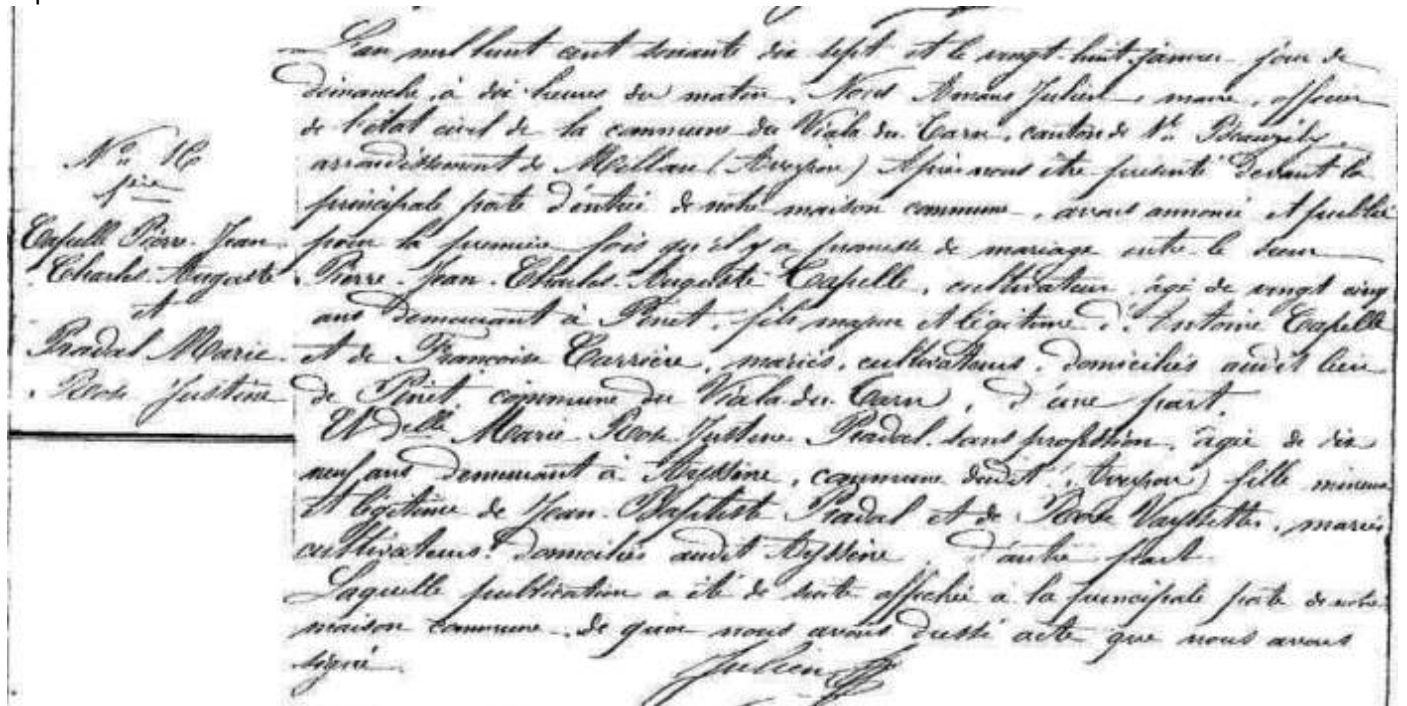 N° 16
1ère
Capelle Pierre-Jean-
Charles-Auguste
et
Pradal Marie-
Rose Justine
L'an mil huit cent soixante dix sept et le vingt-huit janvier jour de
dimanche, à dix heures du matin, Nous Amans Julien, maire, officier
de l'état civil de la commune du Viala du Tarn, canton de St. Beauzély,
arrondissement de Millau (Aveyron) Après nous être présenté devant la
principale porte d'entrée de notre maison commune, avons annoncé et publié
pour la première fois qu'il y a promesse de mariage entre le sieur
Pierre-Jean-Charles-Auguste Capelle, cultivateur, âgé de vingt cinq
ans demeurant à Pinet, fils majeur et légitime d'Antoine Capelle
et de Françoise Carrière, mariés, cultivateurs, domiciliés audit lieu
de Pinet, commune du Viala du Tarn, d'une part.
Et Delle Marie-Rose-Justine Pradal, sans profession, âgée de dix
neuf ans demeurant à Ayssène, commune dudit (Aveyron) fille mineure
et légitime de Jean-Baptiste Pradal et de Rose Vayssettes, mariés
cultivateurs, domiciliés audit Ayssène, d'autre part.
Laquelle publication a été de suite affichée à la principale porte de notre
maison commune, de quoi nous avons dressé acte que nous avons
signé.
Julien